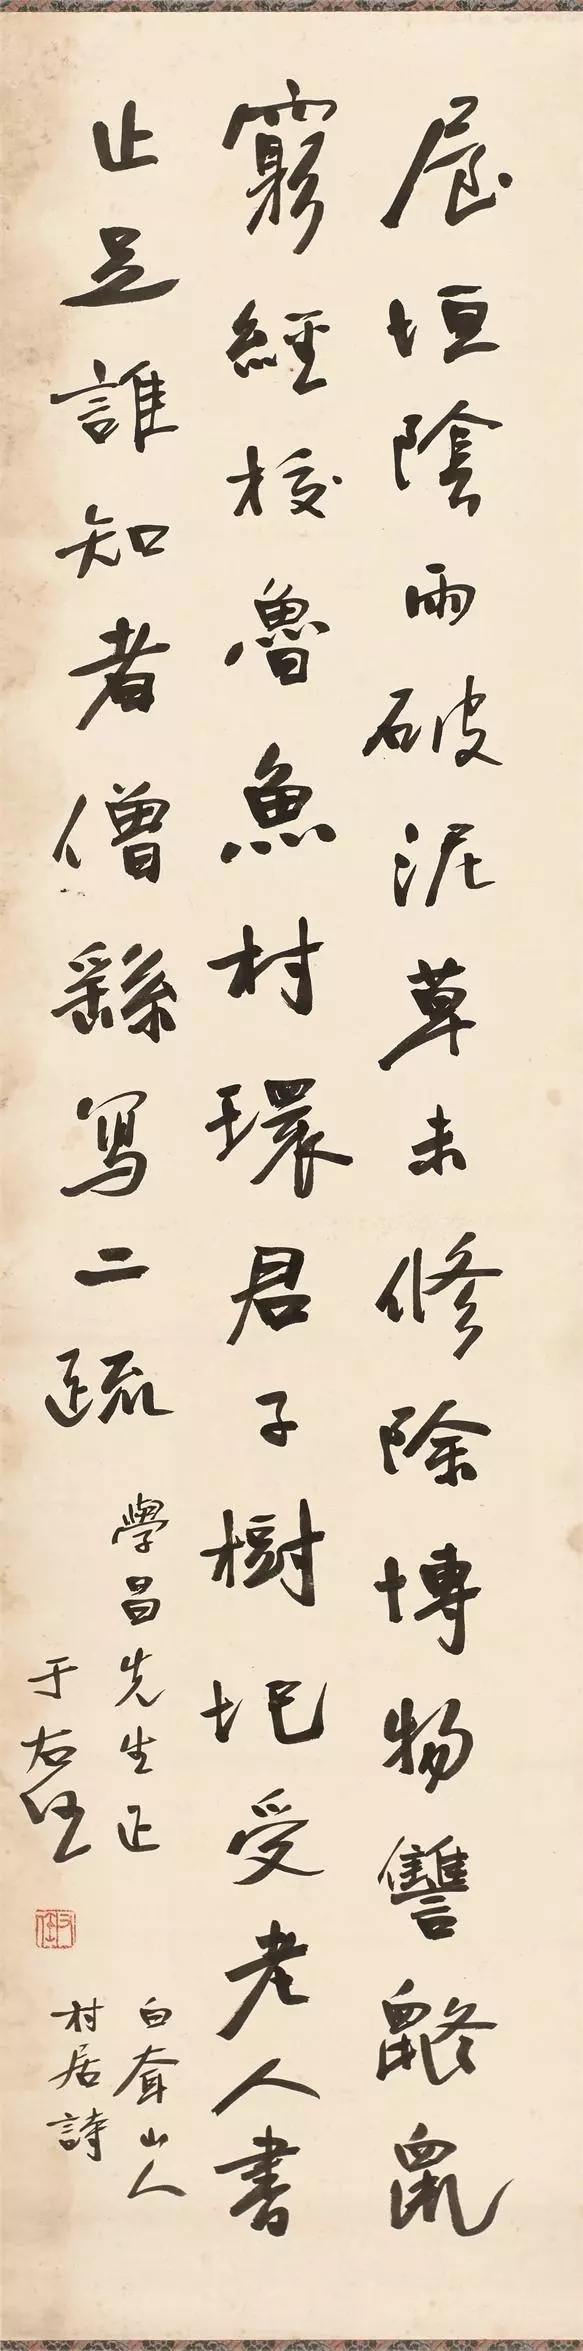 屋垣陰雨破泥草未修除博物讐鼨鼠
窮經校魯魚村環君子樹圯受老人書
止足誰知者僧繇寫二疏
學昌先生正
于右任
右任
白耷山人
村居詩